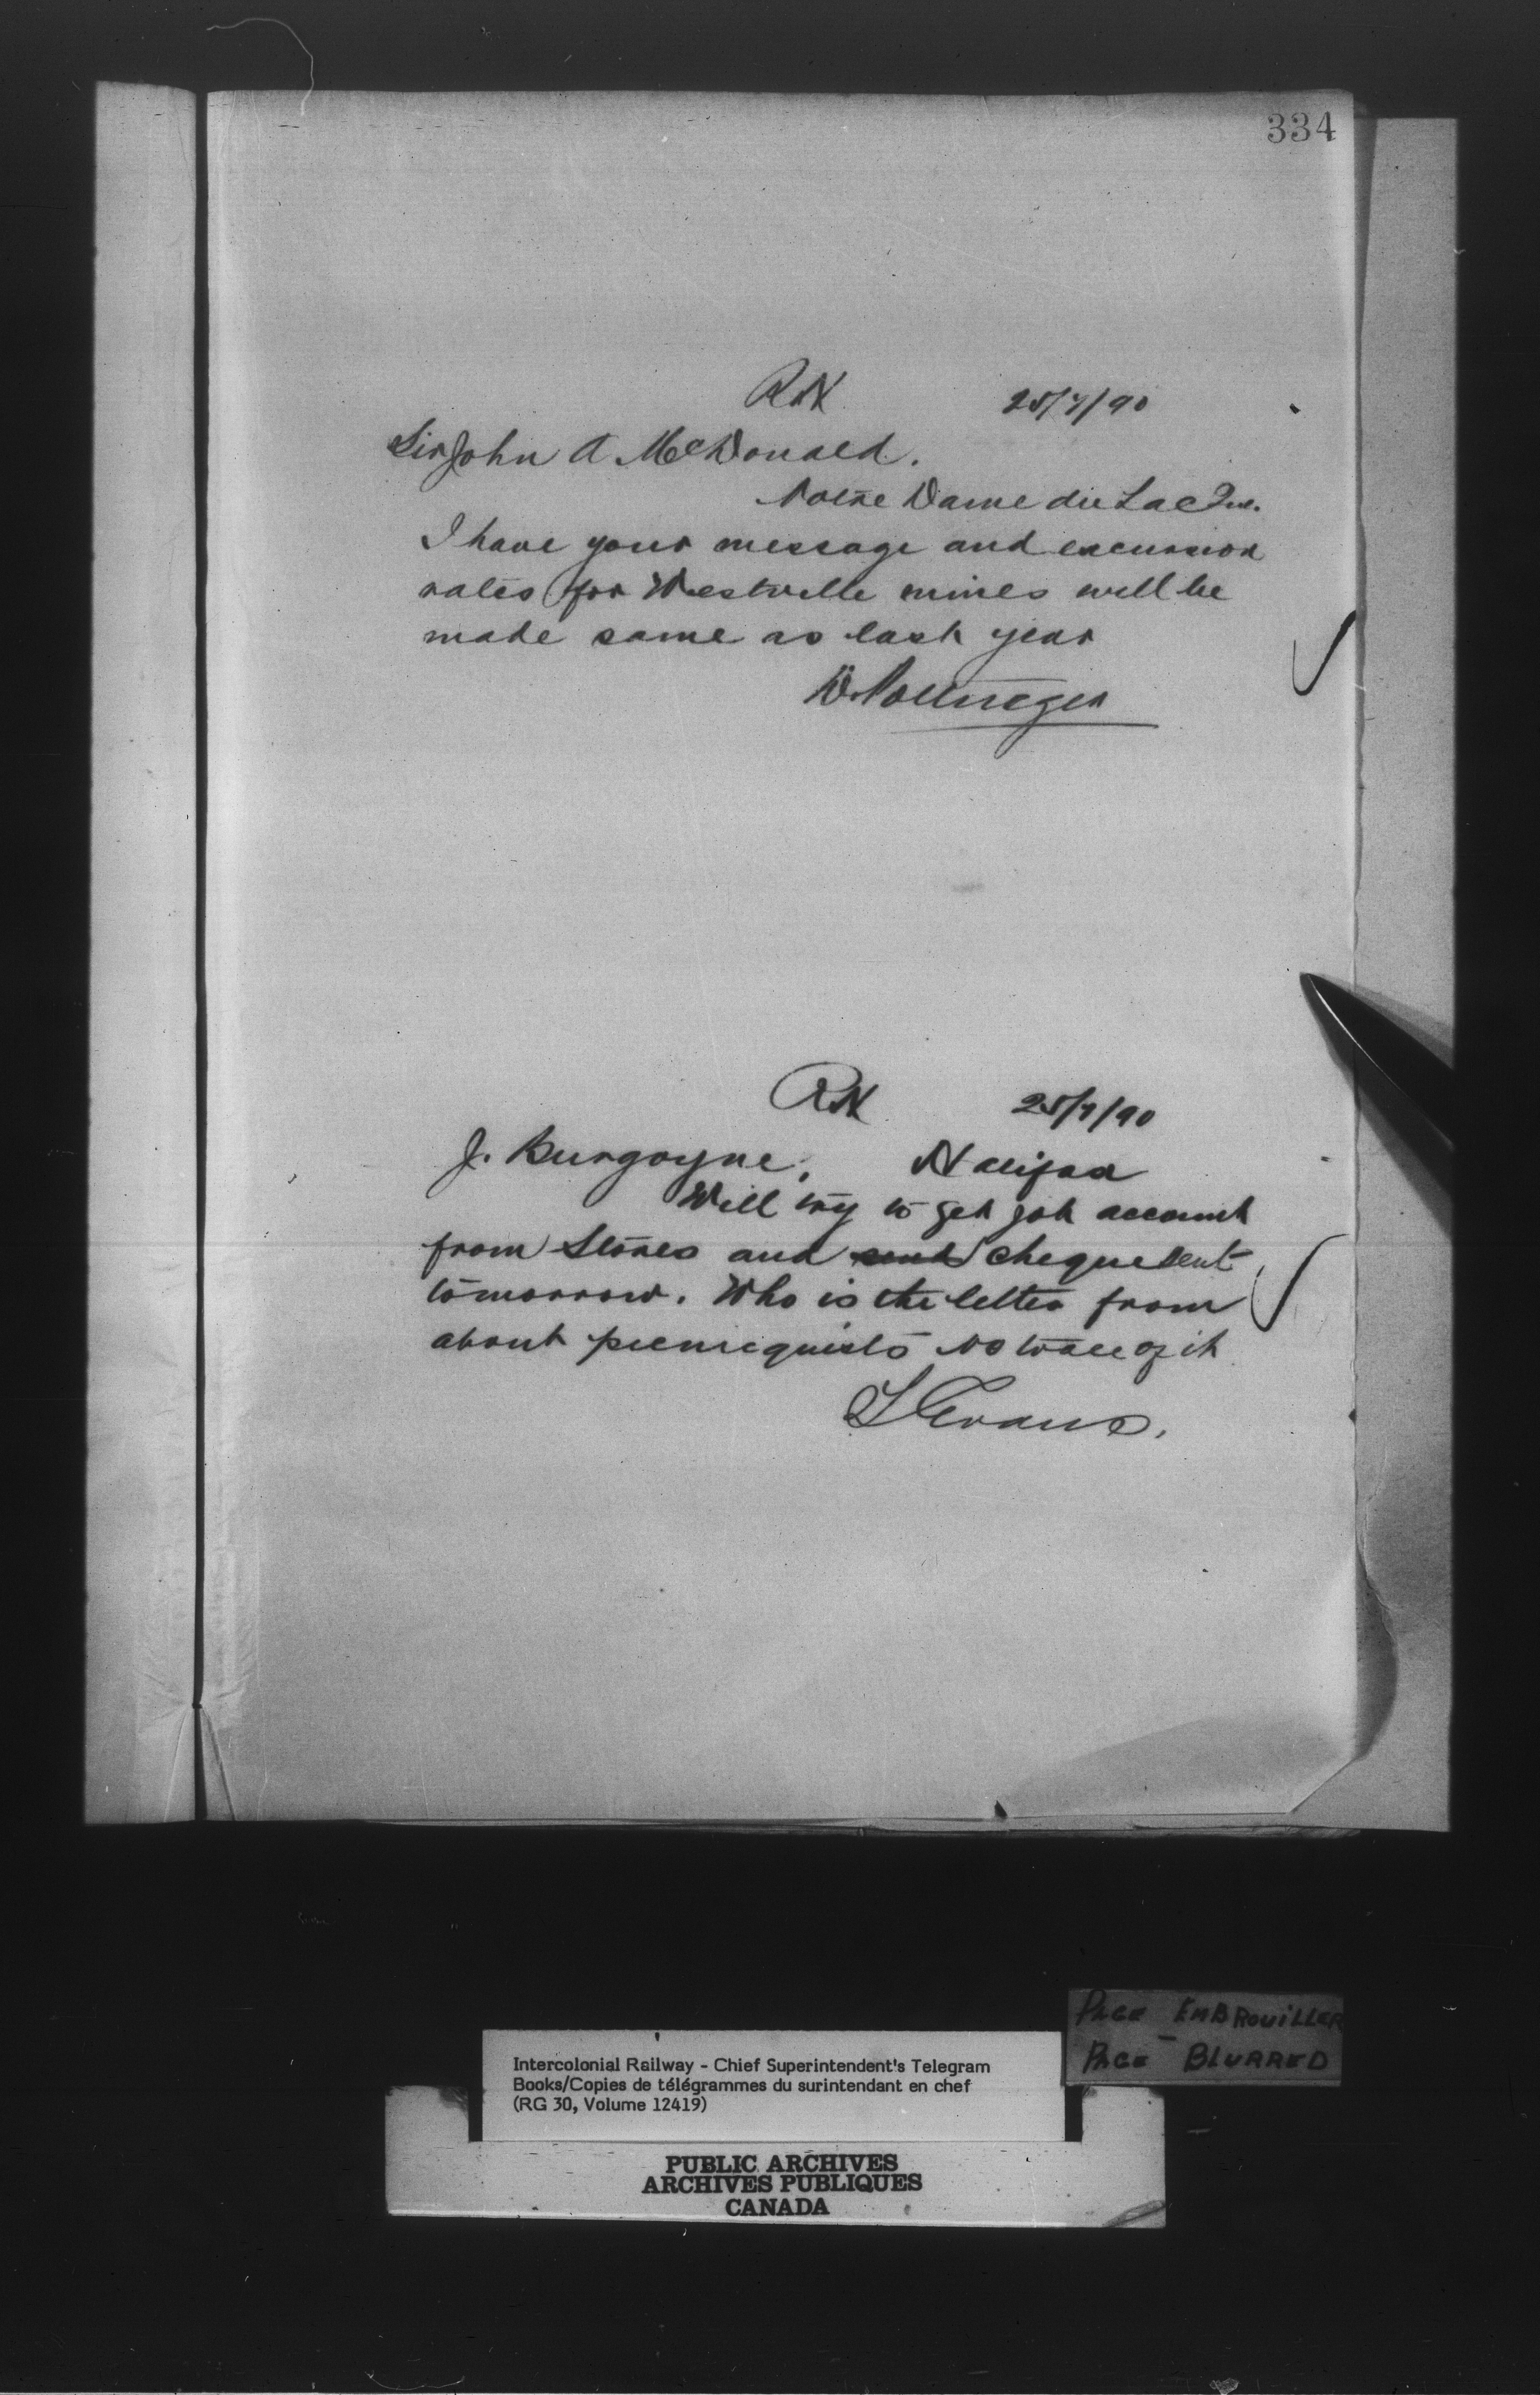 334
RN 25/7/90
Sir John A McDonald.
Notre Dame du Lac Que.
I have your message and excursion
rates for Westville mines will be
made same as last year
D. Pottinger
RN 25/7/90
J. Burgoyne, Halifax
Will try to get job account
from Stores and send cheque sent
tomorrow. Who is the letter from
about No trace of it
Evans.
Intercolonial Railway - Chief Superintendent's Telegram
Books/Copies de télégrammes du surintendant en chef
(RG 30, Volume 12419)
PAGE EMBROUILLER
PAGE BLURRED
PUBLIC ARCHIVES
ARCHIVES PUBLIQUES
CANADA